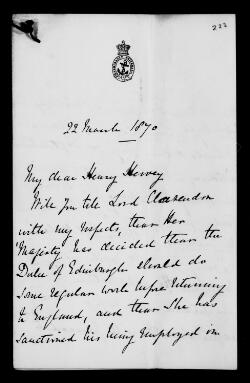 222
22 March 1870
My dear Henry Hervey
Will you tell Lord Clarendon
with my respects, that Her
Majesty has decided that the
Duke of Edinburgh should do
some regular work before returning
to England, and that She has
sanctioned his being employed in